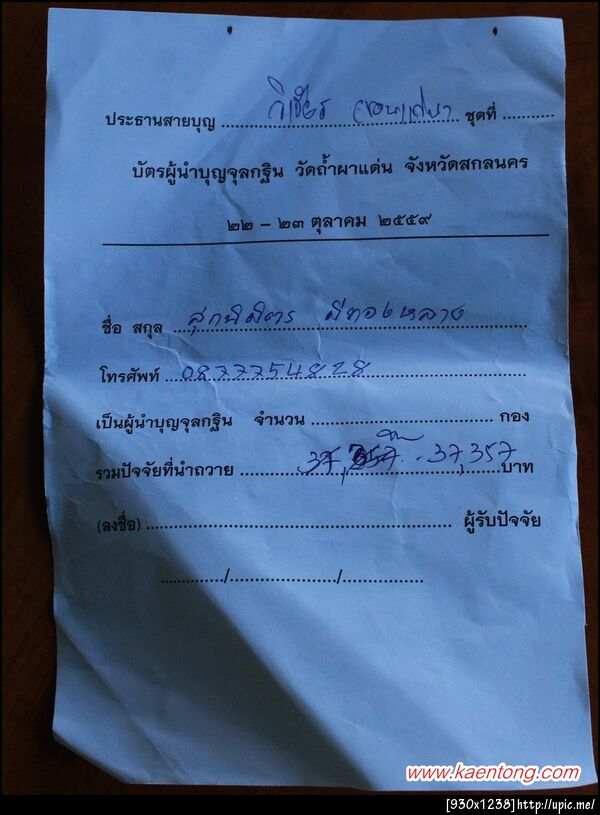 ประธานสายบุญ วิเชียร ชุดที่
บัตรผู้นำบุญจุลกฐิน วัดถ้ำผาแด่น จังหวัดสกลนคร
๒๒ - ๒๓ ตุลาคม ๒๕๕๙
ชื่อ สกุล สุภนิมิตร มีทองหลาง
โทรศัพท์ 0877754828
เป็นผู้นำบุญจุลกฐิน จำนวน กอง
รวมปัจจัยที่นำถวาย 37,357 บาท
(ลงชื่อ) ผู้รับปัจจัย
/ /
www.kaentong.com
[930x1238]http://upic.me/